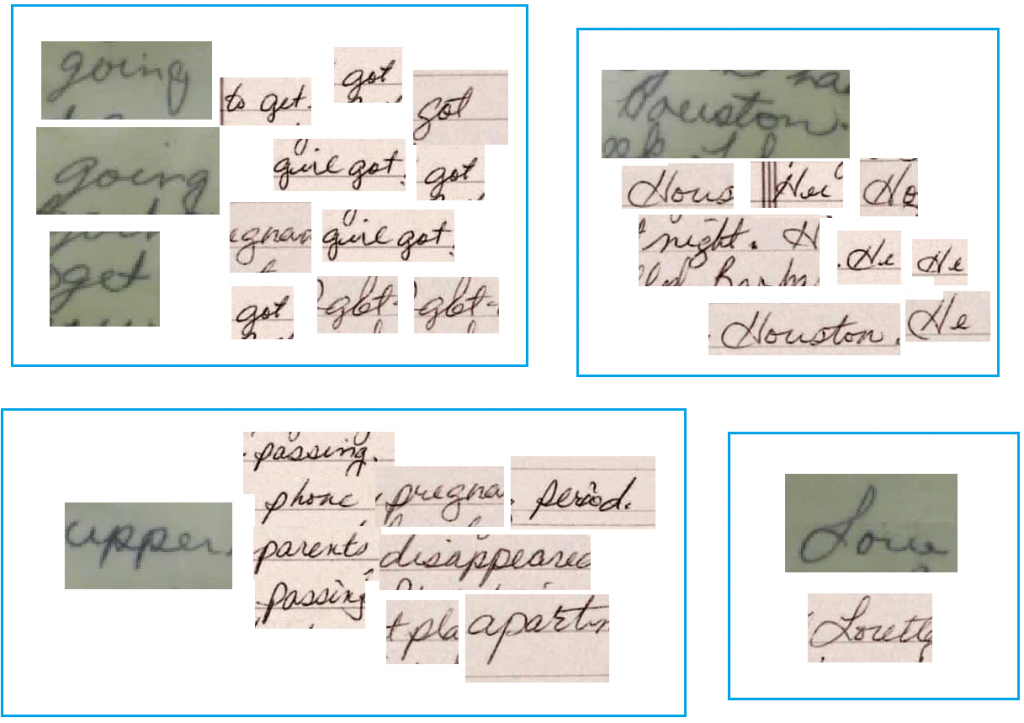 going
to get.
got
got
going
girl got.
got
egnan
girl got.
get
got
got-
got-
Houston.
Hous
Hei
Ho
night. H
He
He
Houston.
He
upper.
passing.
phone
pregna
period.
parents
disappeared
passing
t pla
apartm
Love
Loretta